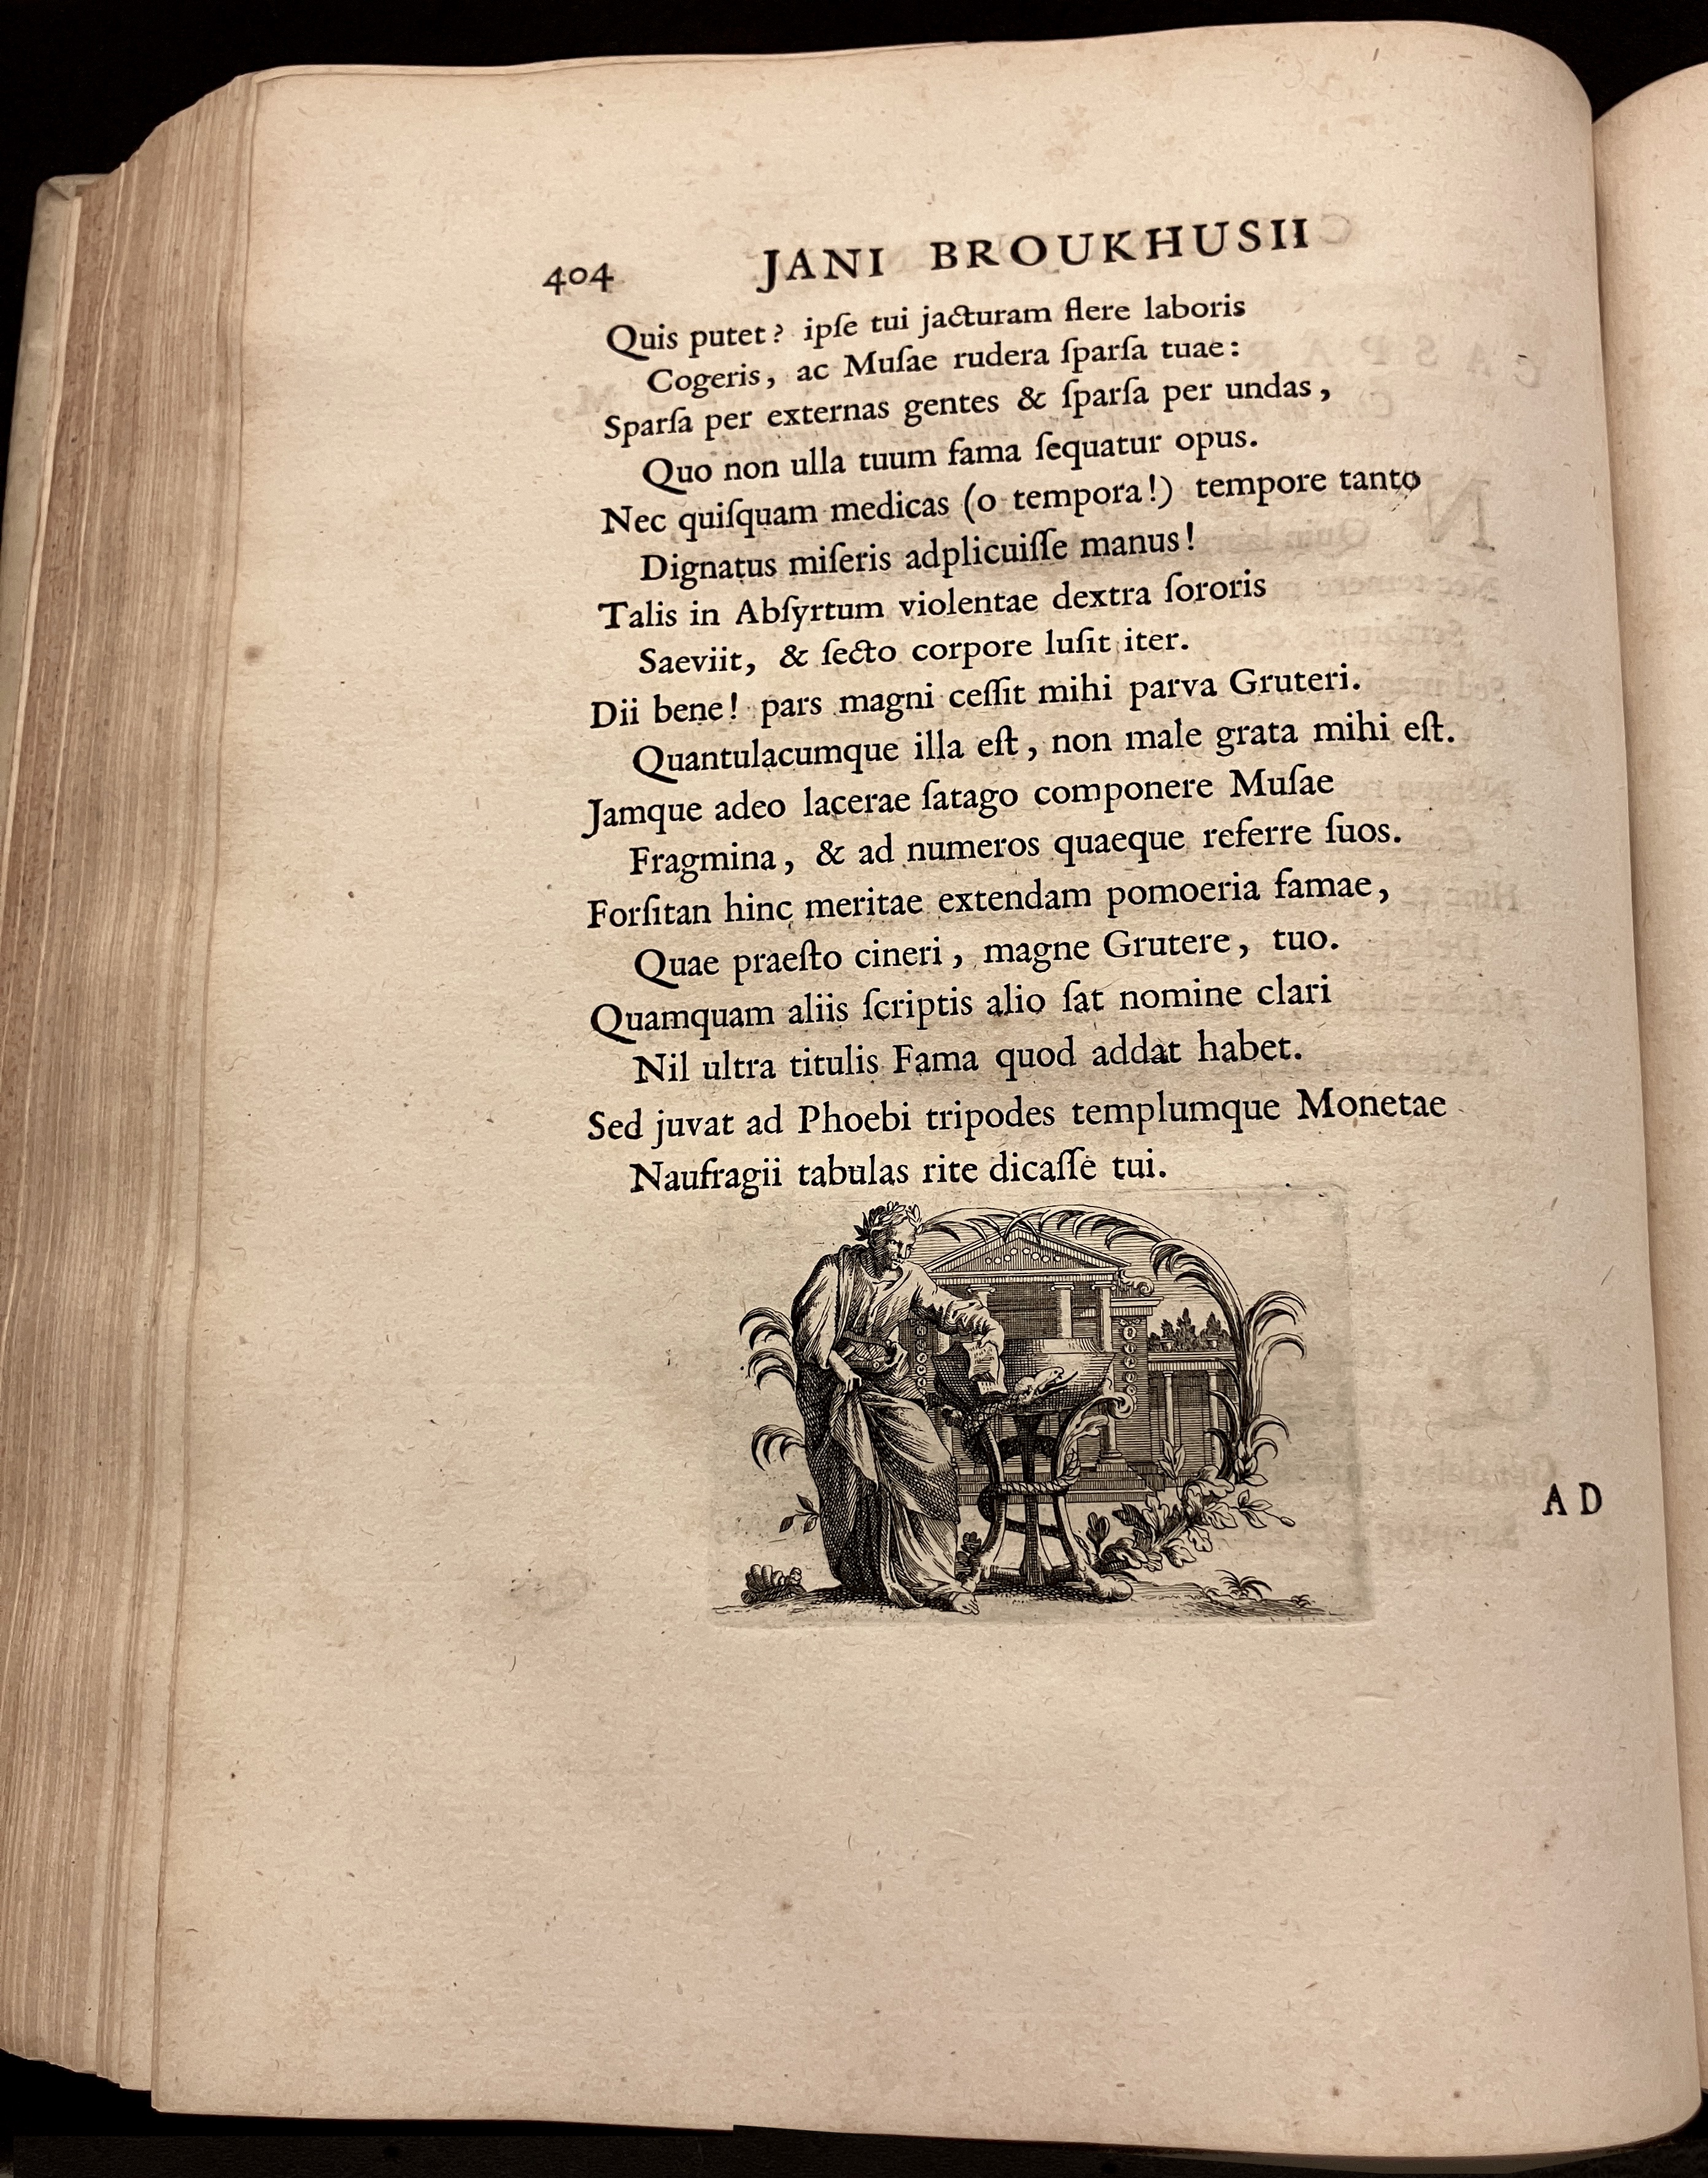 404 JANI BROUKHUSII
Quis putet? ipſe tui jacturam flere laboris
Cogeris, ac Muſae rudera ſparſa tuae:
Sparſa per externas gentes & ſparſa per undas,
Quo non ulla tuum fama ſequatur opus.
Nec quiſquam medicas (o tempora!) tempore tanto
Dignatus miſeris adplicuiſſe manus!
Talis in Abſyrtum violentae dextra ſororis
Saeviit, & ſecto corpore luſit iter.
Dii bene! pars magni ceſſit mihi parva Gruteri.
Quantulacumque illa eſt, non male grata mihi eſt.
Jamque adeo lacerae ſatago componere Muſae
Fragmina, & ad numeros quaeque referre ſuos.
Forſitan hinc meritae extendam pomoeria famae,
Quae praeſto cineri, magne Grutere, tuo.
Quamquam aliis ſcriptis alio ſat nomine clari
Nil ultra titulis Fama quod addat habet.
Sed juvat ad Phoebi tripodes templumque Monetae
Naufragii tabulas rite dicaſſe tui.
AD